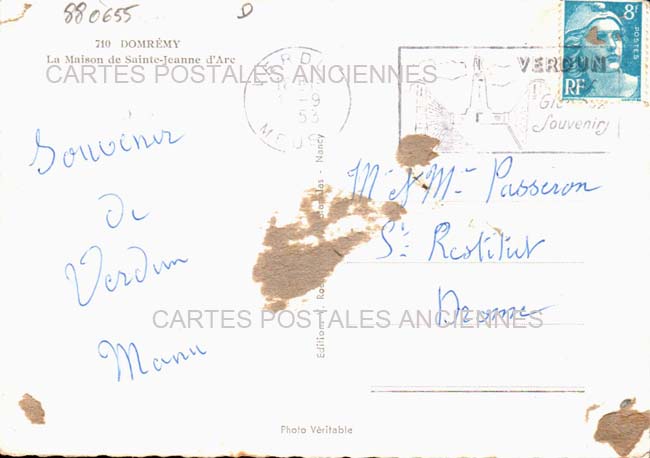 880655
D
710 DOMRÉMY
La Maison de Sainte-Jeanne d'Arc
CARTES POSTALES ANCIENNES
VERDUN
53
MEUSE
VERDUN
Souvenirs
8F
POSTES
RF
Souvenir
de
Verdun
Manu
Mr et Mme Passeron
St Restitut
Drome
CARTES POSTALES ANCIENNES
Nancy
Photo Véritable